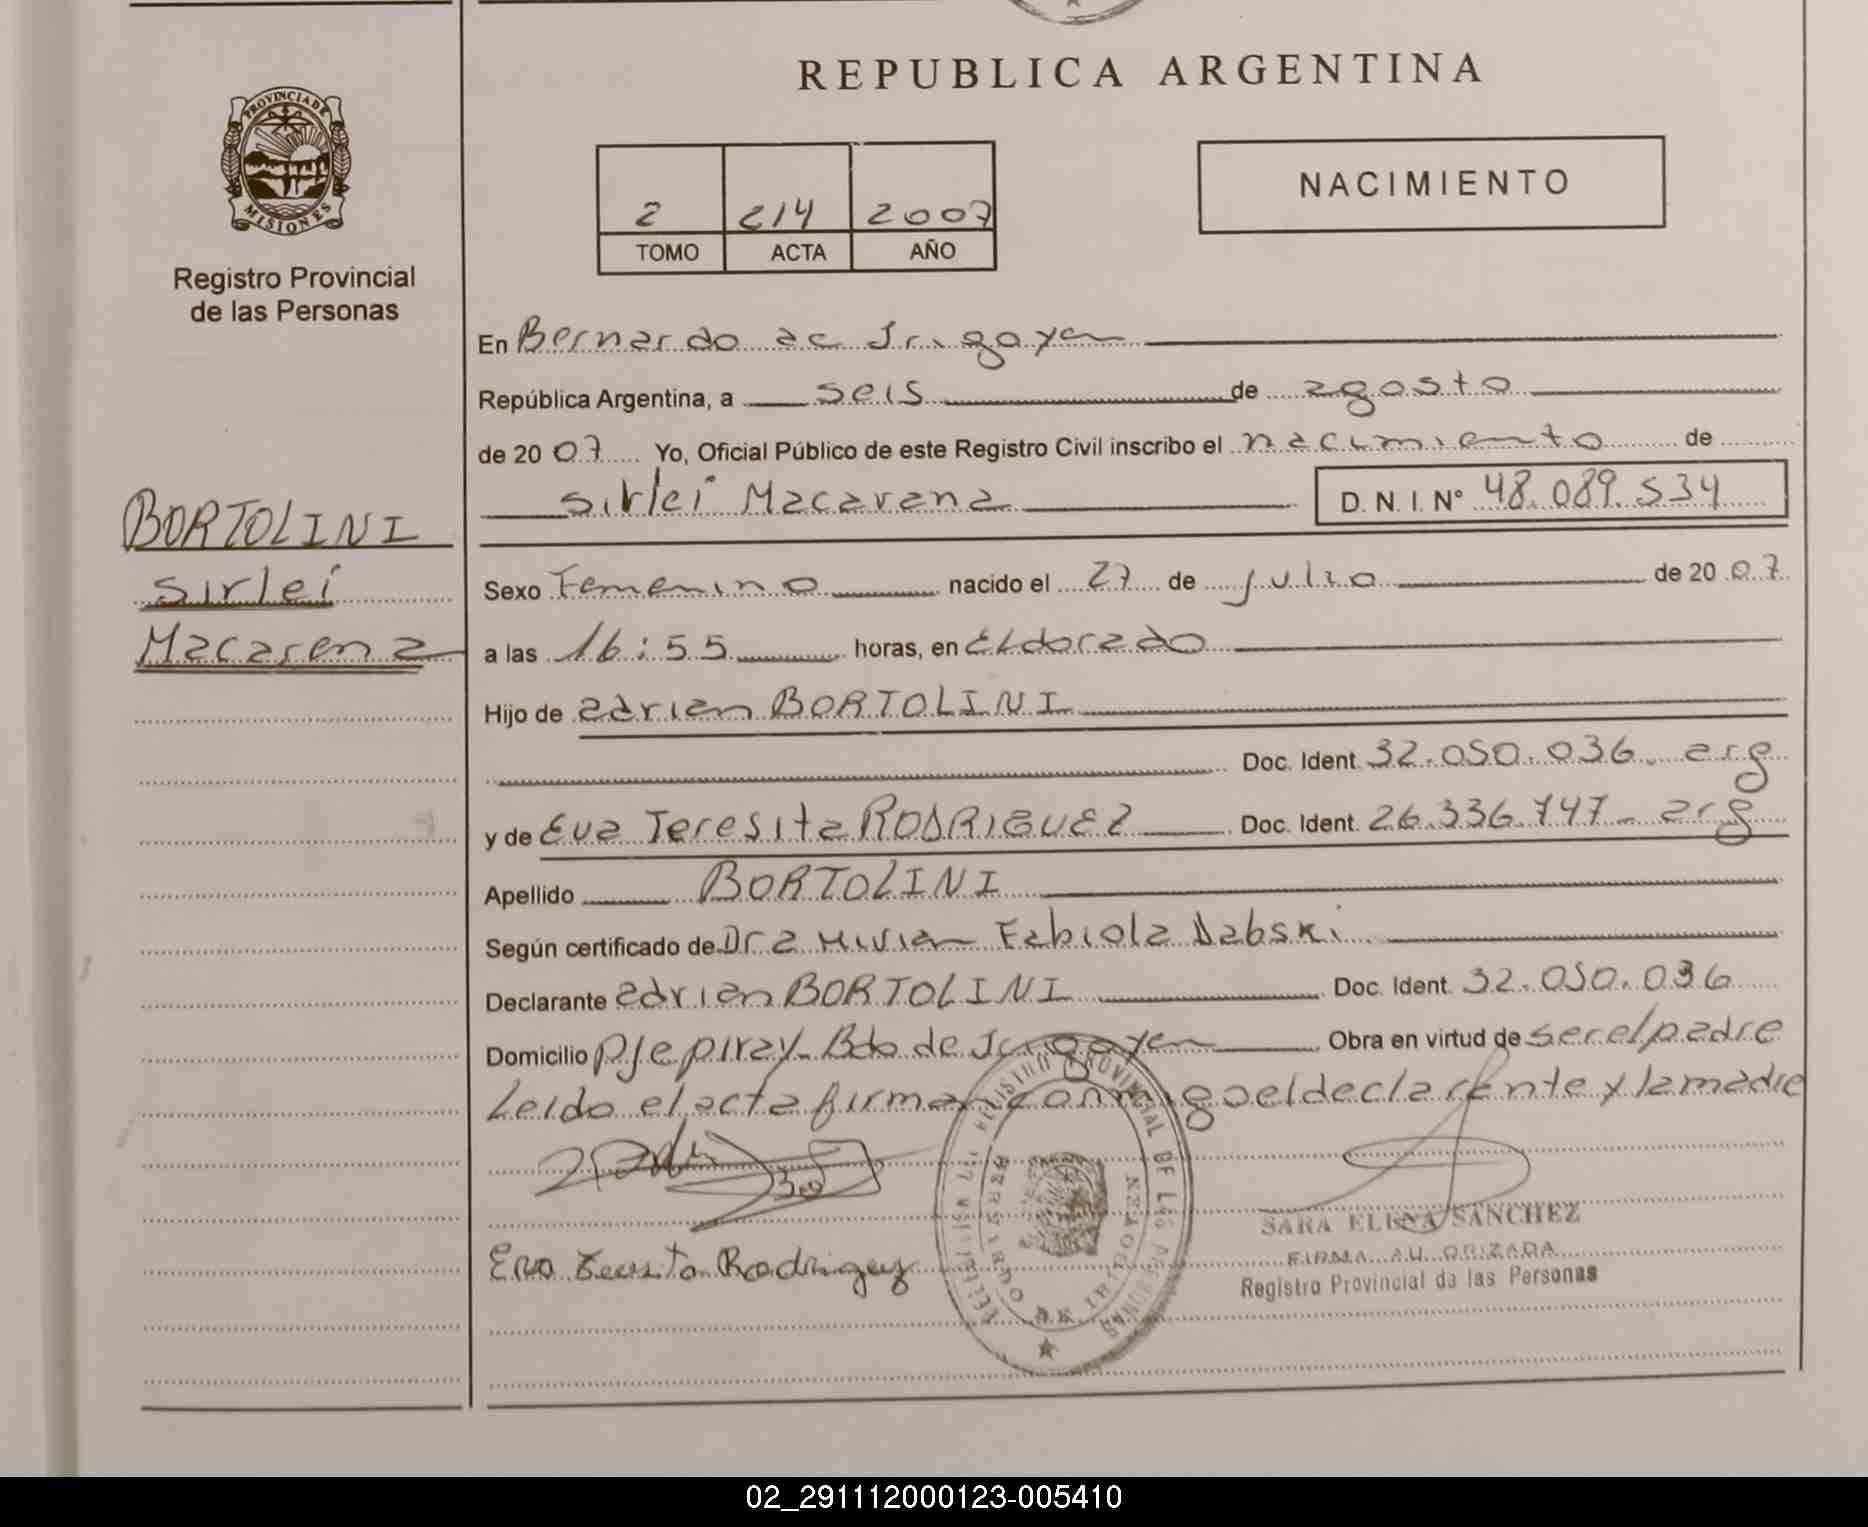 REPUBLICA ARGENTINA
PROVINCIA DE
MISIONES
Registro Provincial
de las Personas
2 214 2007
TOMO ACTA AÑO
NACIMIENTO
En Bernardo de Irigoyen
República Argentina, a seis de agosto
de 2007 Yo, Oficial Público de este Registro Civil inscribo el nacimiento de
Sirlei Macarena D. N. I. N° 48.089.534
BORTOLINI
Sirlei
Macarena
Sexo Femenino nacido el 27 de julio de 2007
a las 16:55 horas, en Eldorado
Hijo de adrian BORTOLINI
Doc. Ident. 32.050.036. arg
y de Eva Teresita RODRIGUEZ Doc. Ident. 26.336.747 - arg
Apellido BORTOLINI
Según certificado de Dra Fabiola Dabski
Declarante adrian BORTOLINI Doc. Ident. 32.050.036
Domicilio Pje piray - Bdo de Irigoyen Obra en virtud de ser el padre
Leido el acta firman conmigo el declarante y la madre
REGISTRO PROVINCIAL DE LAS PERSONAS
SARA ELENA SANCHEZ
FIRMA AUTORIZADA
Registro Provincial de las Personas
Eva Teresita Rodriguez
02_291112000123-005410